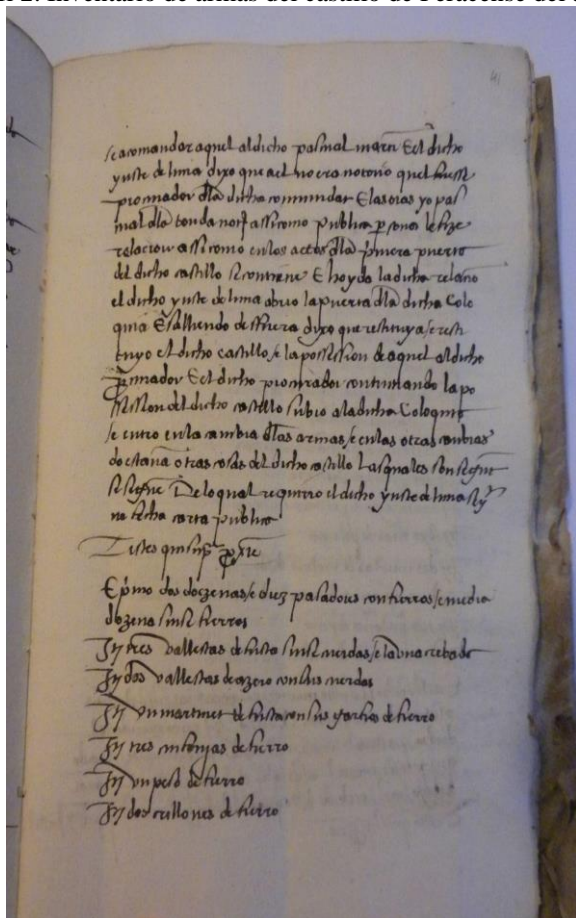 Inventario de armas del castillo de Peracense del
41
se acomandar aquel al dicho pascual E el dicho
yuste de lima dixo que a el no era notorio quel fuesse
procurador dla dicha comunidat E las oras yo pas
cual dla assi como publica le fize
relacion assi como en los actos dla primera puerta
del dicho castillo se contiene E hoyda la dicha relacio
el dicho yuste de lima abrio la puerta dla dicha Colo
quia E salliendo de fuera dixo que restituya e resti
tuyo el dicho castillo e la possession de aquel al dicho
E el dicho procurador continuando la po
ssession del dicho castillo subio a la dicha
e entro en la cambra dlas armas e en las otras cambras
do estavan otras cosas del dicho castillo Lasquales son
se sigue De lo qual requirio el dicho yuste de lima
na fecha carta publica
Testes qui
E primo dos dozenas e diez pasadores con fierros e media
dozena sines fierros
Itꝫ tres vallestas de fusta sines cuerdas e la una
Itꝫ dos vallestas de azero con sus cuerdas
Itꝫ un martinet de fusta con sus garfios de fierro
Itꝫ tres de fierro
Itꝫ un peso de fierro
Itꝫ dos grillones de fierro